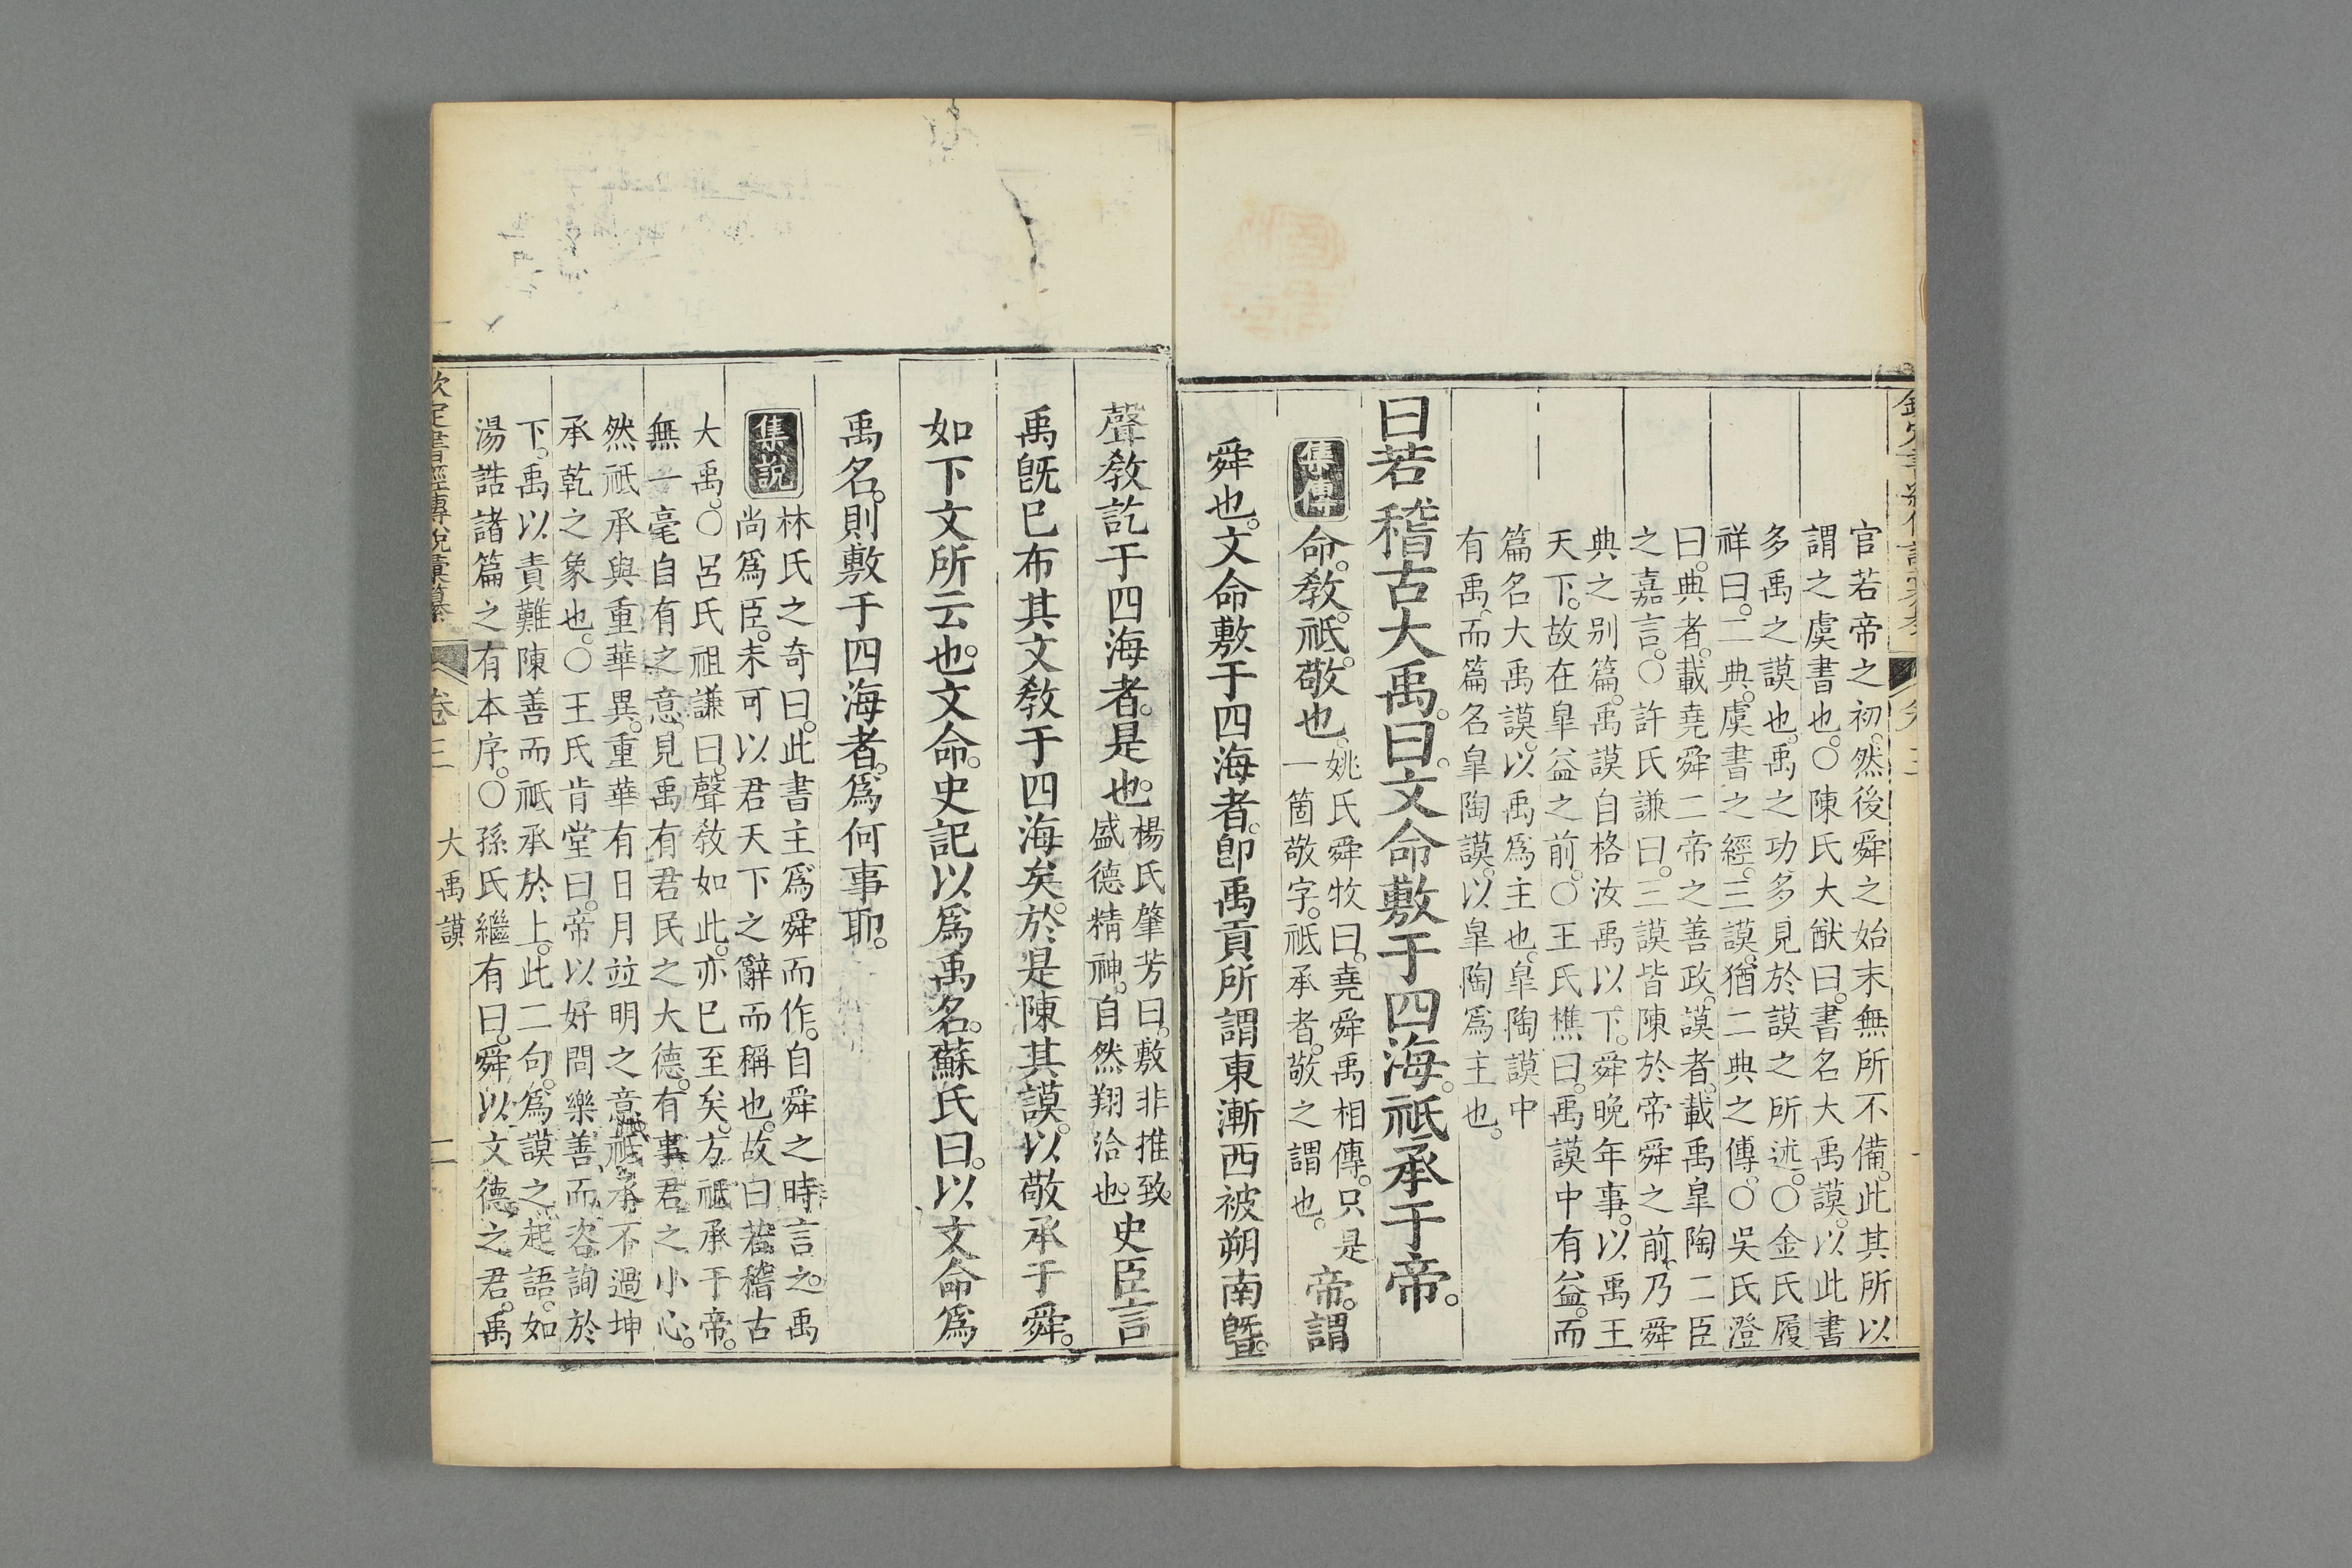 官若帝之初。然後舜之始末無所不備。此其所以
謂之虞書也。○陳氏大猷曰。書名大禹謨。以此書
多禹之謨也。禹之功多見於謨之所述。○金氏履
祥曰。二典。虞書之經。三謨。猶二典之傳。○吳氏澄
曰。典者。載堯舜二帝之善政。謨者。載禹皐陶二臣
之嘉言。○許氏謙曰。三謨皆陳於帝舜之前。乃舜
典之别篇。禹謨自格汝禹以下。舜晚年事。以禹王
天下。故在皐益之前。○王氏樵曰。禹謨中有益。而
篇名大禹謨。以禹爲主也。皐陶謨中
有禹。而篇名皐陶謨。以皐陶爲主也。
曰若稽古大禹。曰。文命敷于四海。祗承于帝。
集傳
命。敎。祗。敬也。
姚氏舜牧曰。堯舜禹相傳。只是
一箇敬字。祗承者。敬之謂也。
帝。謂
舜也。文命敷于四海者。卽禹貢所謂東漸西被朔南曁。
聲敎訖于四海者。是也。
楊氏肇芳曰。敷非推致。
盛德精神。自然翔洽也。
史臣言
禹旣已布其文敎于四海矣。於是陳其謨。以敬承于舜。
如下文所云也。文命。史記以爲禹名。蘇氏曰。以文命爲
禹名。則敷于四海者。爲何事耶。
集說
林氏之奇曰。此書主爲舜而作。自舜之時言之。禹
尚爲臣。未可以君天下之辭而稱也。故曰若稽古
大禹。○呂氏祖謙曰。聲敎如此。亦已至矣。方祗承于帝。
無一毫自有之意。見禹有君民之大德。有事君之小心。
然祗承與重華異。重華有日月竝明之意。祗承不過坤
承乾之象也。○王氏肯堂曰。帝以好問樂善。而咨詢於
下。禹以責難陳善而祗承於上。此二句。爲謨之起語。如
湯誥諸篇之有本序。○孫氏繼有曰。舜以文德之君。禹
欽定書經傳說彙纂
卷三
大禹謨
二